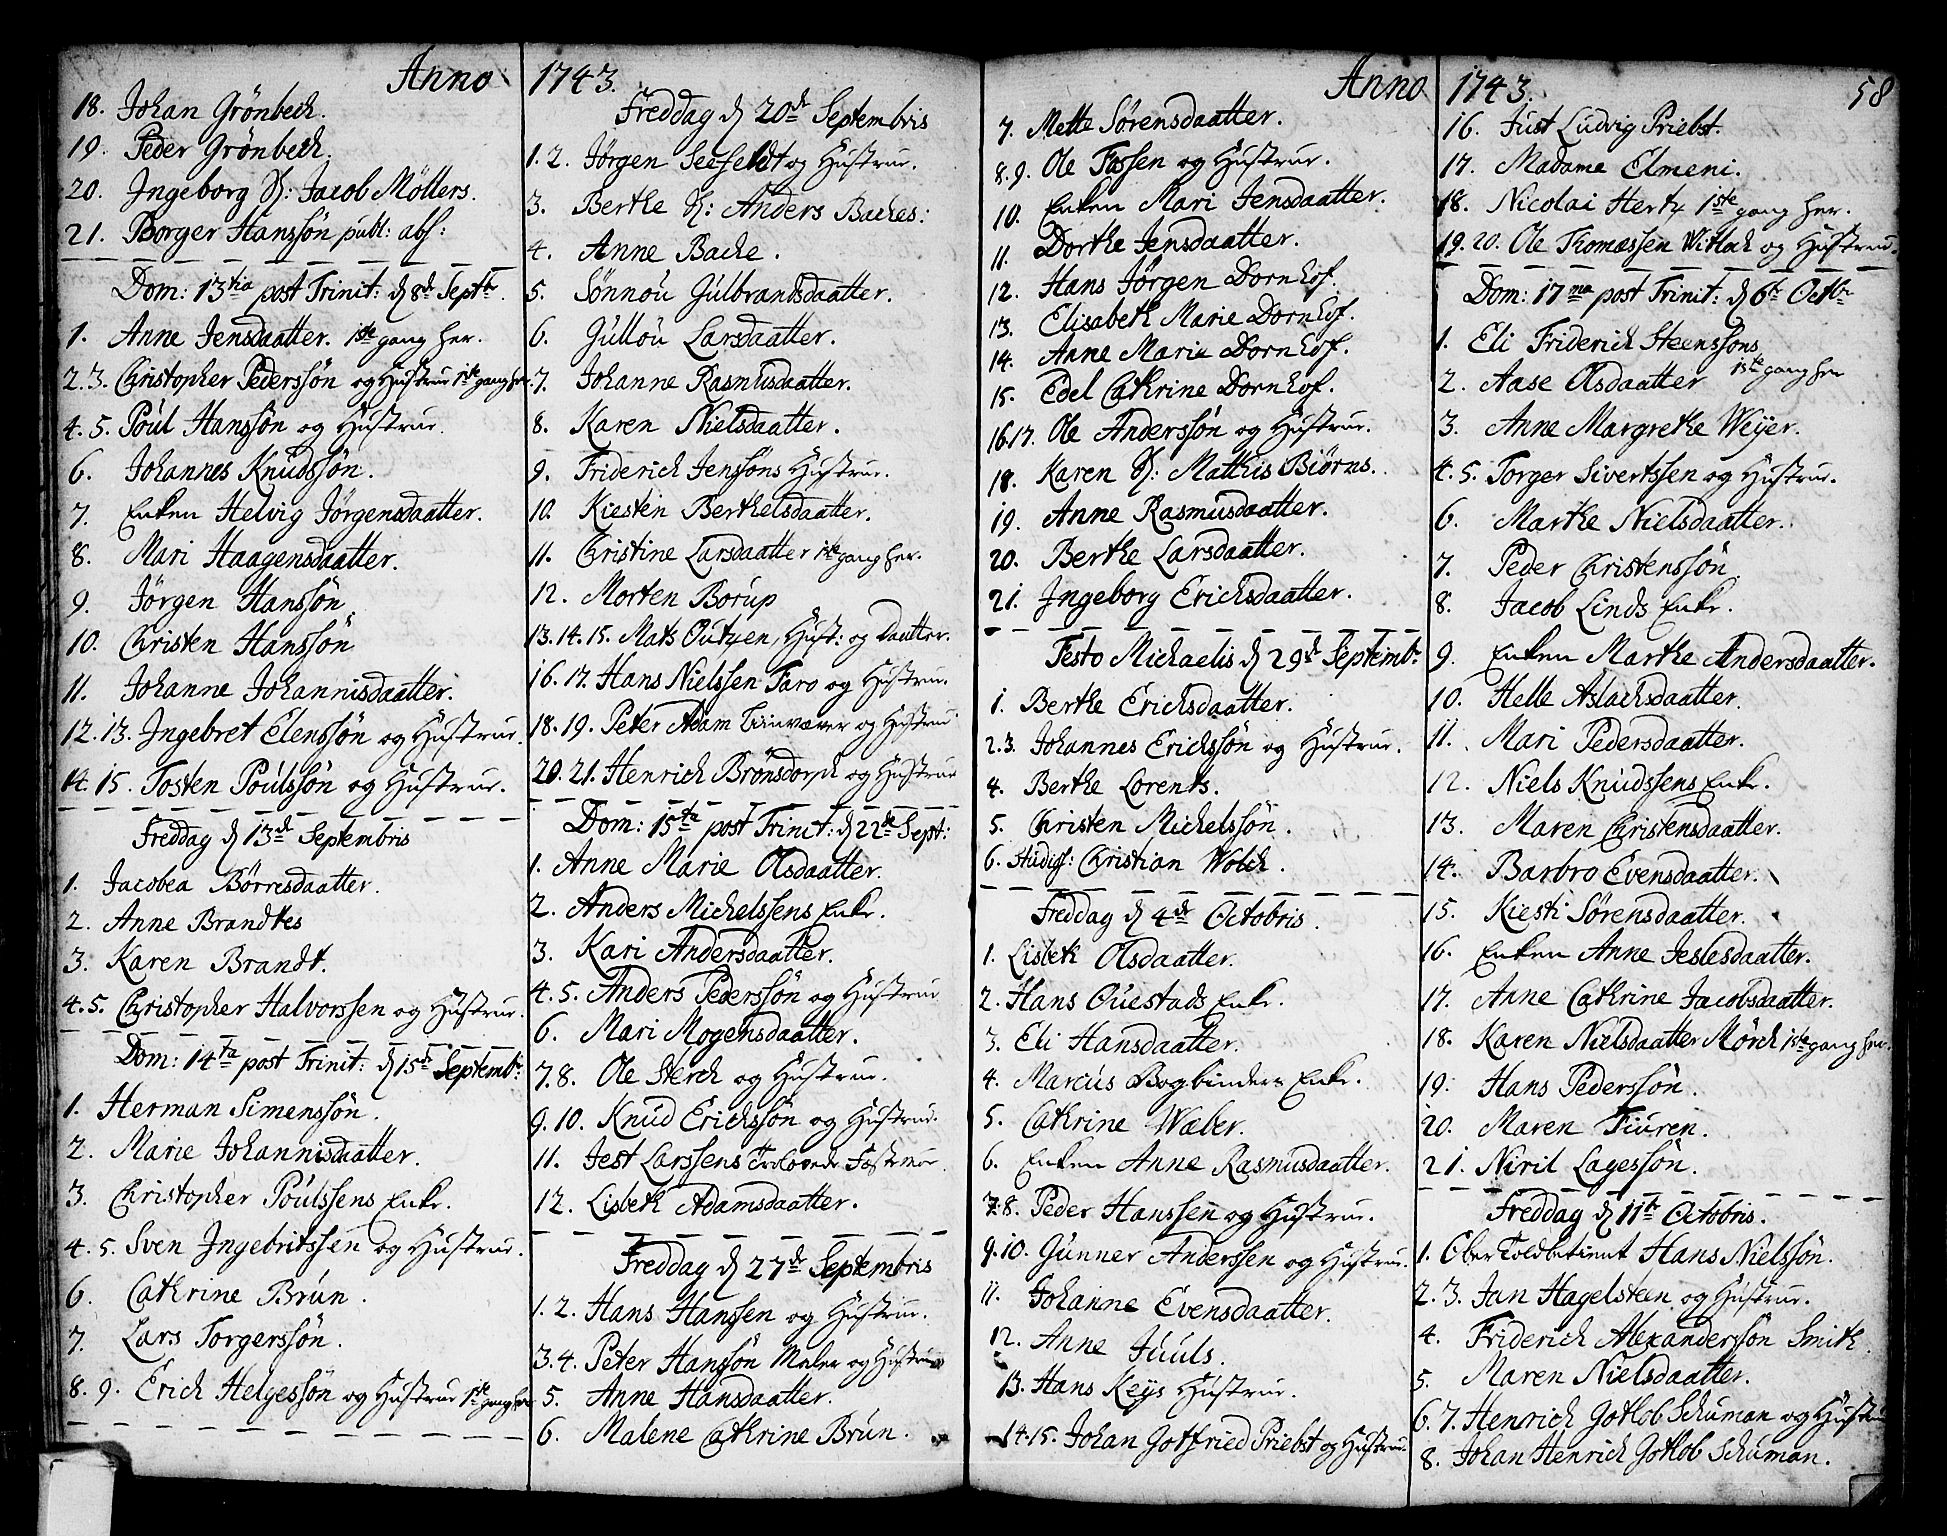 Anno 1743.
18. Johan Grönbech.
19. Peder Grönbech
20. Ingeborg S: Jacob Möllers.
21. Borger Hanssön publ: abs:
Dom: 13tia post Trinit: d 8de Septbr.
1. Anne Jensdaatter. 1ste gang her.
2.3. Christopher Pederssön og Hustrue 1ste gang her.
4.5. Poül Hanssön og Hüstrue.
6. Johannes Knüdssön.
7. Enken Helvig Jörgensdaatter.
8. Mari Haagensdaatter.
9. Jörgen Hanssön.
10. Christen Hanssön
11. Johanne Johannisdaatter.
12.13. Ingebret Elenssön og Hüstrue.
14.15. Tosten Poülssön og Hustrue.
Freddag d 13de Septembris
1. Jacobea Börresdaatter.
2. Anne Brandtes
3. Karen Brandt.
4.5. Christopher Halvorssen og Hüstrue.
Dom: 14ta post Trinit: d 15de Septemb:
1. Herman Simenssön.
2. Marie Johannisdaatter.
3. Christopher Poülssens Enke.
4.5. Sven Ingebritssen og Hustrue.
6. Cathrine Brün.
7. Lars Torgerssön.
8.9. Erich Helgessön og Hustrue 1ste gang her
Freddag d 20de Septembris
1.2. Jörgen Seefeldt og Hustrue.
3. Berthe S: Anders Baches:
4. Anne Bache.
5. Sönnou Gülbrandsdaatter.
6. Güllou Larsdaatter.
7. Johanne Rasmusdaatter.
8. Karen Nielsdaatter.
9. Friderich Jenssöns Hustrue.
10. Kiesten Berthelsdaatter.
11. Christine Larsdaatter 1ste gang her.
12. Morten Borüp
13.14.15. Mats Outzen, Hust: og Daatter.
16.17. Hans Nielssen Faro og Hüstrue.
18.19. Peter Adam og Hüstrue
20.21. Henrich Brönsdorph og Hüstrue
Dom: 15ta post Trinit: d 22de Sept:
1. Anne Marie Olsdaatter.
2. Anders Michelssens Enke.
3. Kari Andersdaatter.
4.5. Anders Pederssön og Hüstrue
6. Mari Mogensdaatter.
7.8. Ole Sterch og Hustrue.
9.10. Knüd Erichssön og Hustrue.
11. Jest Larssens Trolovede Fæstemöe.
12. Lisbeth Adamsdaatter.
Freddag d 27de Septembris
1.2. Hans Hanssen og Hustrue.
3.4. Peter Hanssön Maler og Hüstrue
5. Anne Hansdaatter.
6. Malene Cathrine Brün.
Anno 1743. 58
7. Mette Sörensdaatter.
8.9. Ole Fossen og Hustrue.
10. Enken Mari Jensdaatter.
11. Dorthe Jensdaatter.
12. Hans Jörgen Dornhof.
13. Elisabeth Marie Dornhof.
14. Anne Marie Dornhof.
15. Edel Cathrine Dornhof.
16.17. Ole Anderssön og Hustrue.
18. Karen S: Mathis Biörns.
19. Anne Rasmusdaatter.
20. Berthe Larsdaatter.
21. Ingeborg Erichsdaatter.
Festo Michaelis d 29de Septemb:
1. Berthe Erichsdaatter.
2.3. Johannes Erichssön og Hustrue.
4. Berthe Lorents.
5. Christen Michelssön.
6. Studios: Christian Wolch.
Freddag d 4de Octobris.
1. Lisbeth Olsdaatter.
2. Hans Ouestads Enke.
3. Eli Hansdaatter.
4. Marcus Bogbinders Enke.
5. Cathrine Wæber.
6. Enken Anne Rasmusdaatter.
7.8. Peder Hanssen og Hustrue.
9.10. Günner Anderssen og Hustrue.
11. Johanne Evensdaatter.
12. Anne Juuls.
13. Hans Keÿs Hustrue.
14.15. Johan Gotfried Priebst og Hustrue.
16. Just Ludvig Priebst.
17. Madame Elmeni.
18. Nicolai Hertz 1ste gang her.
19.20. Ole Thomassen Withah og Hustrue.
Dom: 17ma post Trinit: d 6te Octbr
1. Eli Friderich Steenssöns
2. Aase Olsdaatter 1ste gang her
3. Anne Margrethe Weÿer.
4.5. Torger Sivertssen og Hustrue.
6. Marthe Nielsdaatter.
7. Peder Christenssön.
8. Jacob Linds Enke.
9. Enken Marthe Andersdaatter.
10. Helle Aslachsdaatter.
11. Mari Pedersdaatter.
12. Niels Knüdssens Enke.
13. Maren Christensdaatter.
14. Barbro Evensdaatter.
15. Kiesti Sörensdaatter.
16. Enken Anne Jeslesdaatter.
17. Anne Cathrine Jacobsdaatter.
18. Karen Nielsdaatter Mörch 1ste gang her.
19. Hans Pederssön.
20. Maren Fiuren.
21. Niril Lagessön.
Freddag d 11te Octobris.
1. Ober Toldbetient Hans Nielssön.
2.3. Jan Hagelsteen og Hustrue.
4. Friderich Alexanderssön Smith.
5. Maren Nielsdaatter.
6.7. Henrich Gotlob Schuman og Hüstrue
8. Johan Henrich Gotlob Schuman.